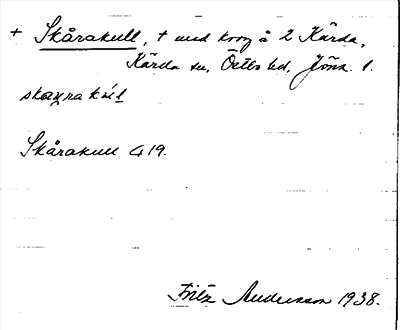 + Skårakull, + med torg å 2 Kärda,
Kärda sn, Östbo hd, Jönk. l.
Skårakull G 19.
Fritz Andersson 1938.